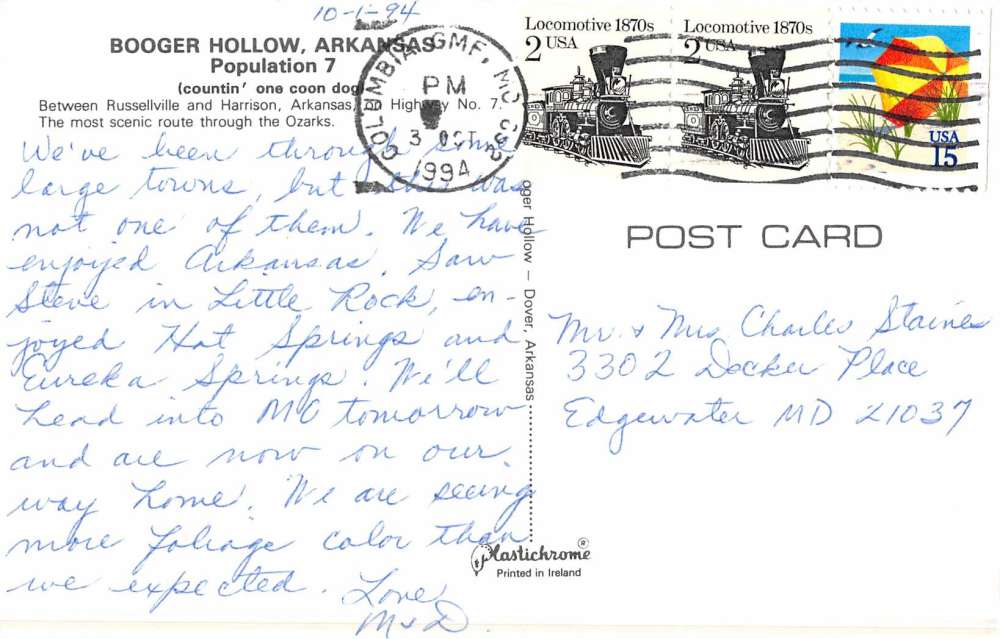 10-1-94
BOOGER HOLLOW, ARKANSAS
Population 7
(countin' one coon dog)
Between Russellville and Harrison, Arkansas, on Highway No. 7.
The most scenic route through the Ozarks.
We've been through some
large towns, but this was
not one of them. We have
enjoyed Arkansas. Saw
Steve in Little Rock, en-
joyed Hot Springs and
Eureka Springs. We'll
head into MO tomorrow
and are now on our
way home. We are seeing
more foliage color than
we expected. Love,
M & D.
COLUMBIA GMF, MO
PM
3 OCT
1994
Locomotive 1870s
2 USA
Locomotive 1870s
2 USA
USA
15
oger Hollow – Dover, Arkansas
POST CARD
Mr. & Mrs Charles Staines
3302 Decker Place
Edgewater MD 21037
Plastichrome®
Printed in Ireland